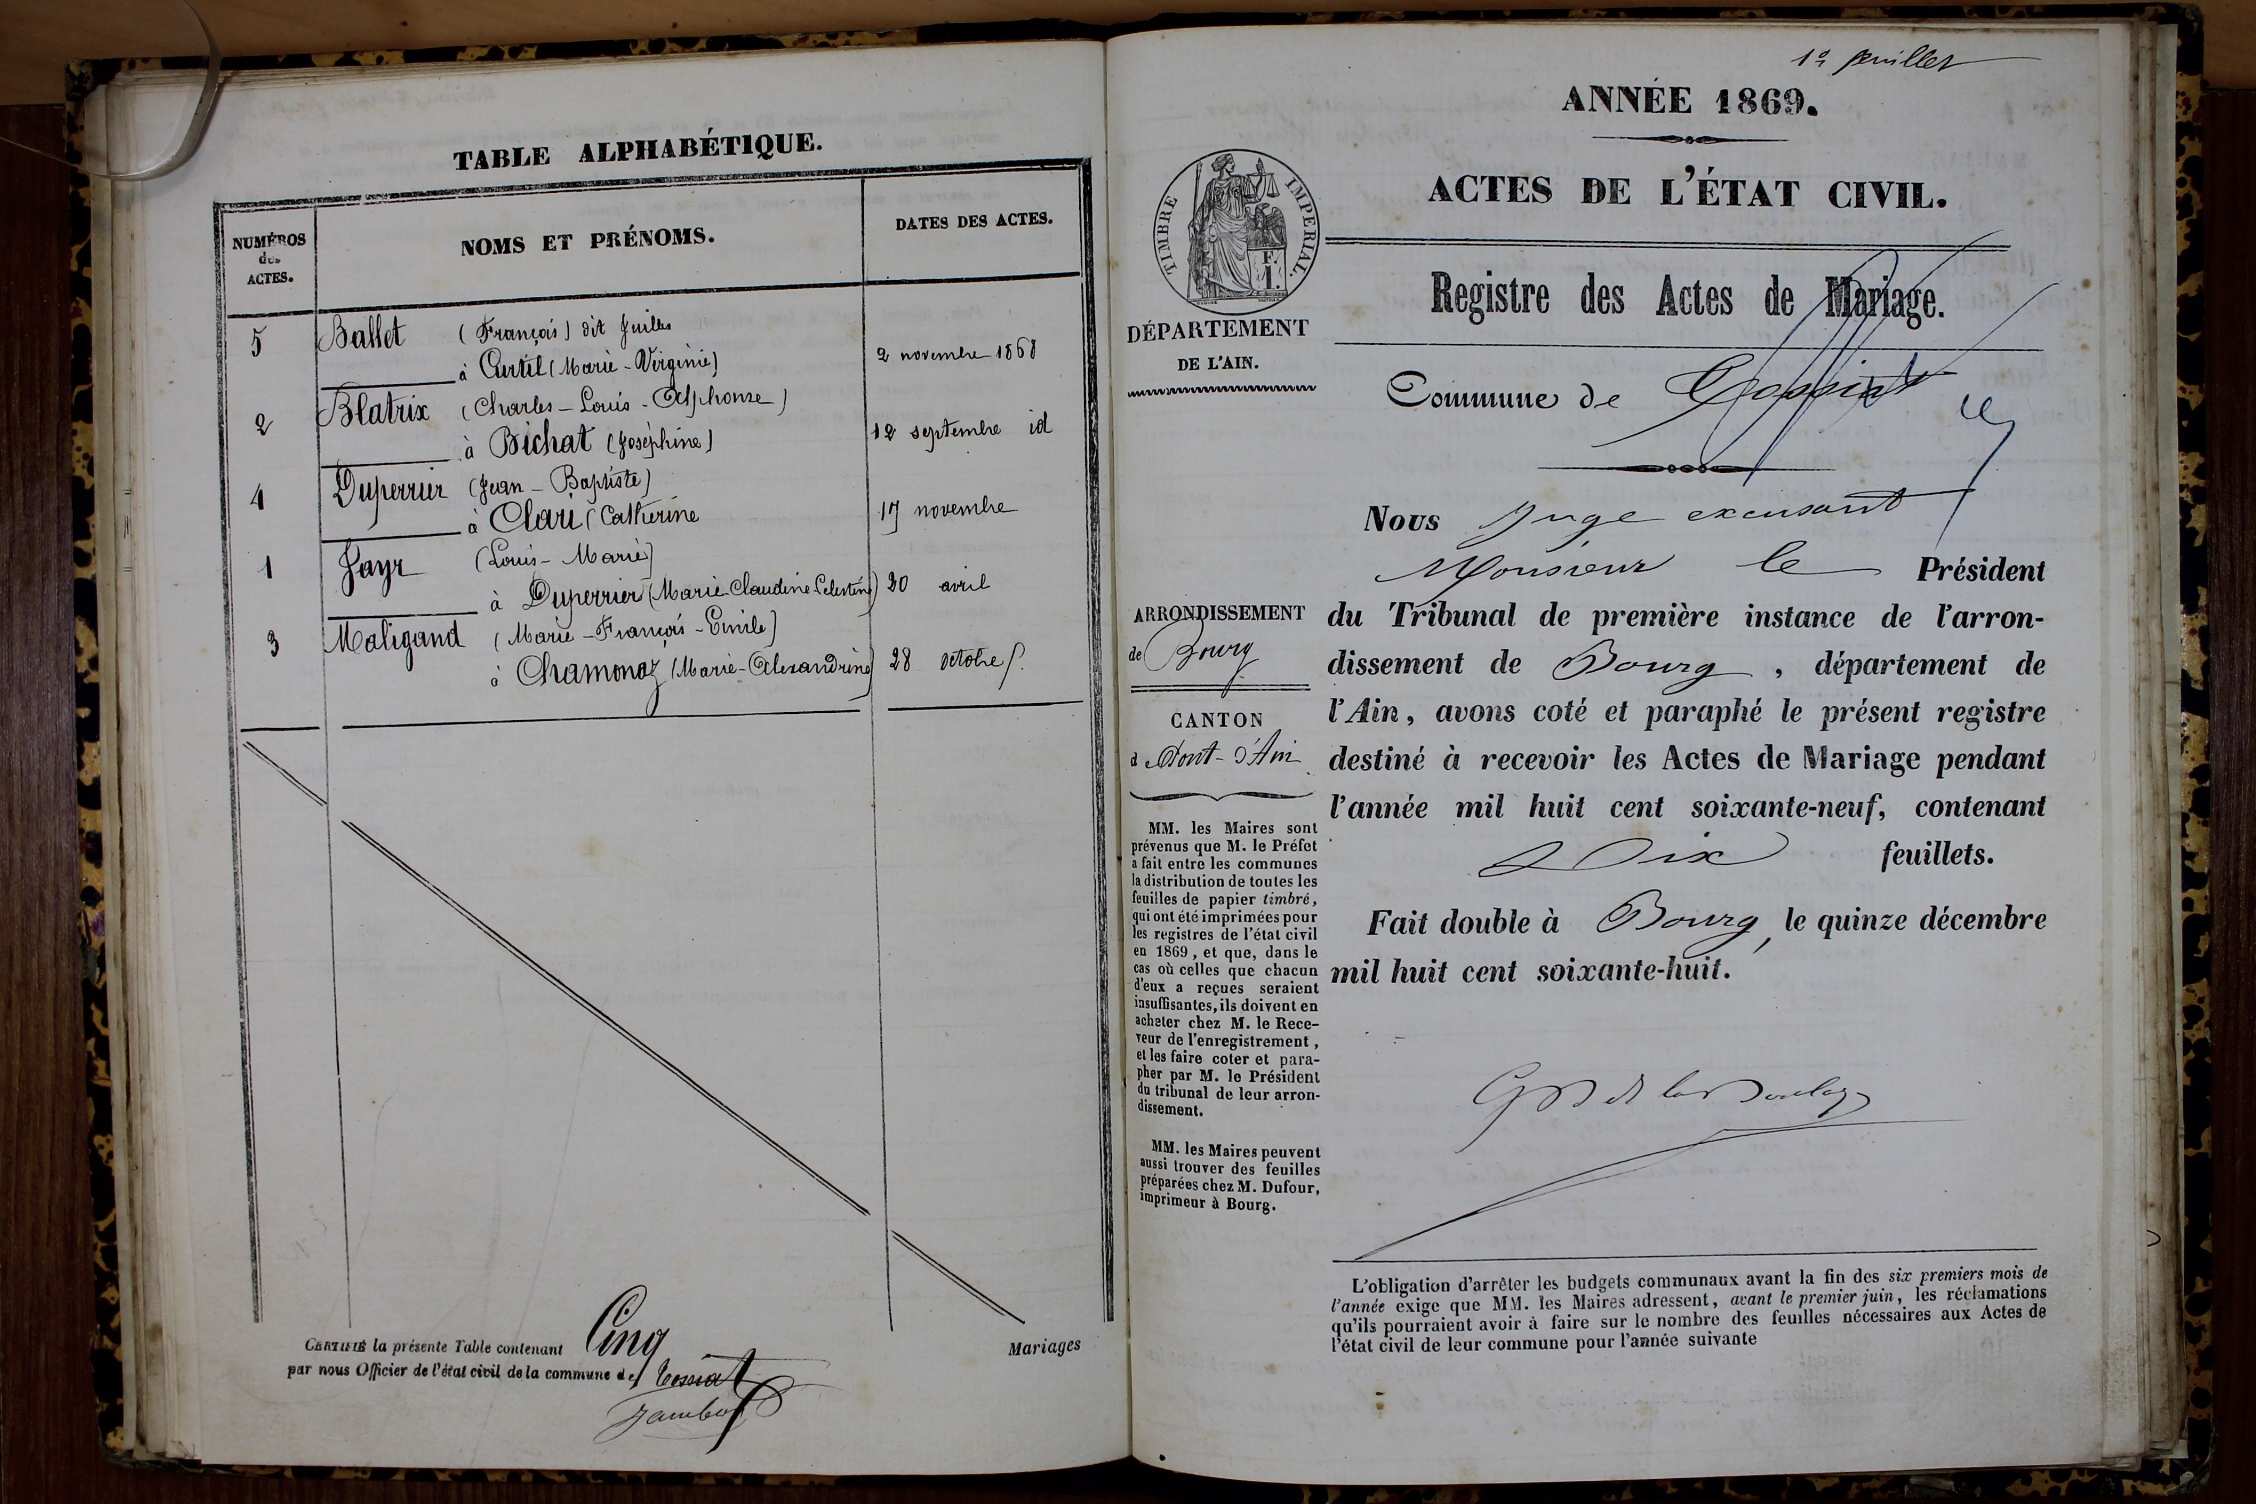 TABLE ALPHABÉTIQUE.
NUMÉROS
des
ACTES.
NOMS ET PRÉNOMS.
DATES DES ACTES.
5 Ballet (François) dit Juilles
à Curtil (Marie-Virginie) 2 novembre 1868
2 Blatrix (Charles-Louis-Alphonse)
à Bichat (Joséphine) 12 septembre id
4 Duperrier (Jean-Baptiste)
à Clari (Catherine 17 novembre
1 Jayr (Louis-Marie)
à Duperrier (Marie-Claudine-Celestine) 20 avril
3 Maligand (Marie-François-Emile)
à Chamonaz (Marie-Alexandrine) 28 octobre
CERTIFIÉ la présente Table contenant Cinq Mariages
par nous Officier de l'état civil de la commune de Tossiat
1er feuillet
ANNÉE 1869.
ACTES DE L'ÉTAT CIVIL.
TIMBRE IMPERIAL.
F.
1.
DÉPARTEMENT
DE L'AIN.
Registre des Actes de Mariage.
Commune de Tossiat
Nous Juge excusant
Monsieur le Président
du Tribunal de première instance de l'arron-
dissement de Bourg, département de
l'Ain, avons coté et paraphé le présent registre
destiné à recevoir les Actes de Mariage pendant
l'année mil huit cent soixante-neuf, contenant
Dix feuillets.
Fait double à Bourg, le quinze décembre
mil huit cent soixante-huit.
ARRONDISSEMENT
de Bourg
CANTON
d Pont-d'Ain
MM. les Maires sont
prévenus que M. le Préfet
a fait entre les communes
la distribution de toutes les
feuilles de papier timbré,
qui ont été imprimées pour
les registres de l'état civil
en 1869, et que, dans le
cas où celles que chacun
d'eux a reçues seraient
insuffisantes, ils doivent en
acheter chez M. le Rece-
veur de l'enregistrement,
et les faire coter et para-
pher par M. le Président
du tribunal de leur arron-
dissement.
MM. les Maires peuvent
aussi trouver des feuilles
préparées chez M. Dufour,
imprimeur à Bourg.
L'obligation d'arrêter les budgets communaux avant la fin des six premiers mois de
l'année exige que MM. les Maires adressent, avant le premier juin, les réclamations
qu'ils pourraient avoir à faire sur le nombre des feuilles nécessaires aux Actes de
l'état civil de leur commune pour l'année suivante